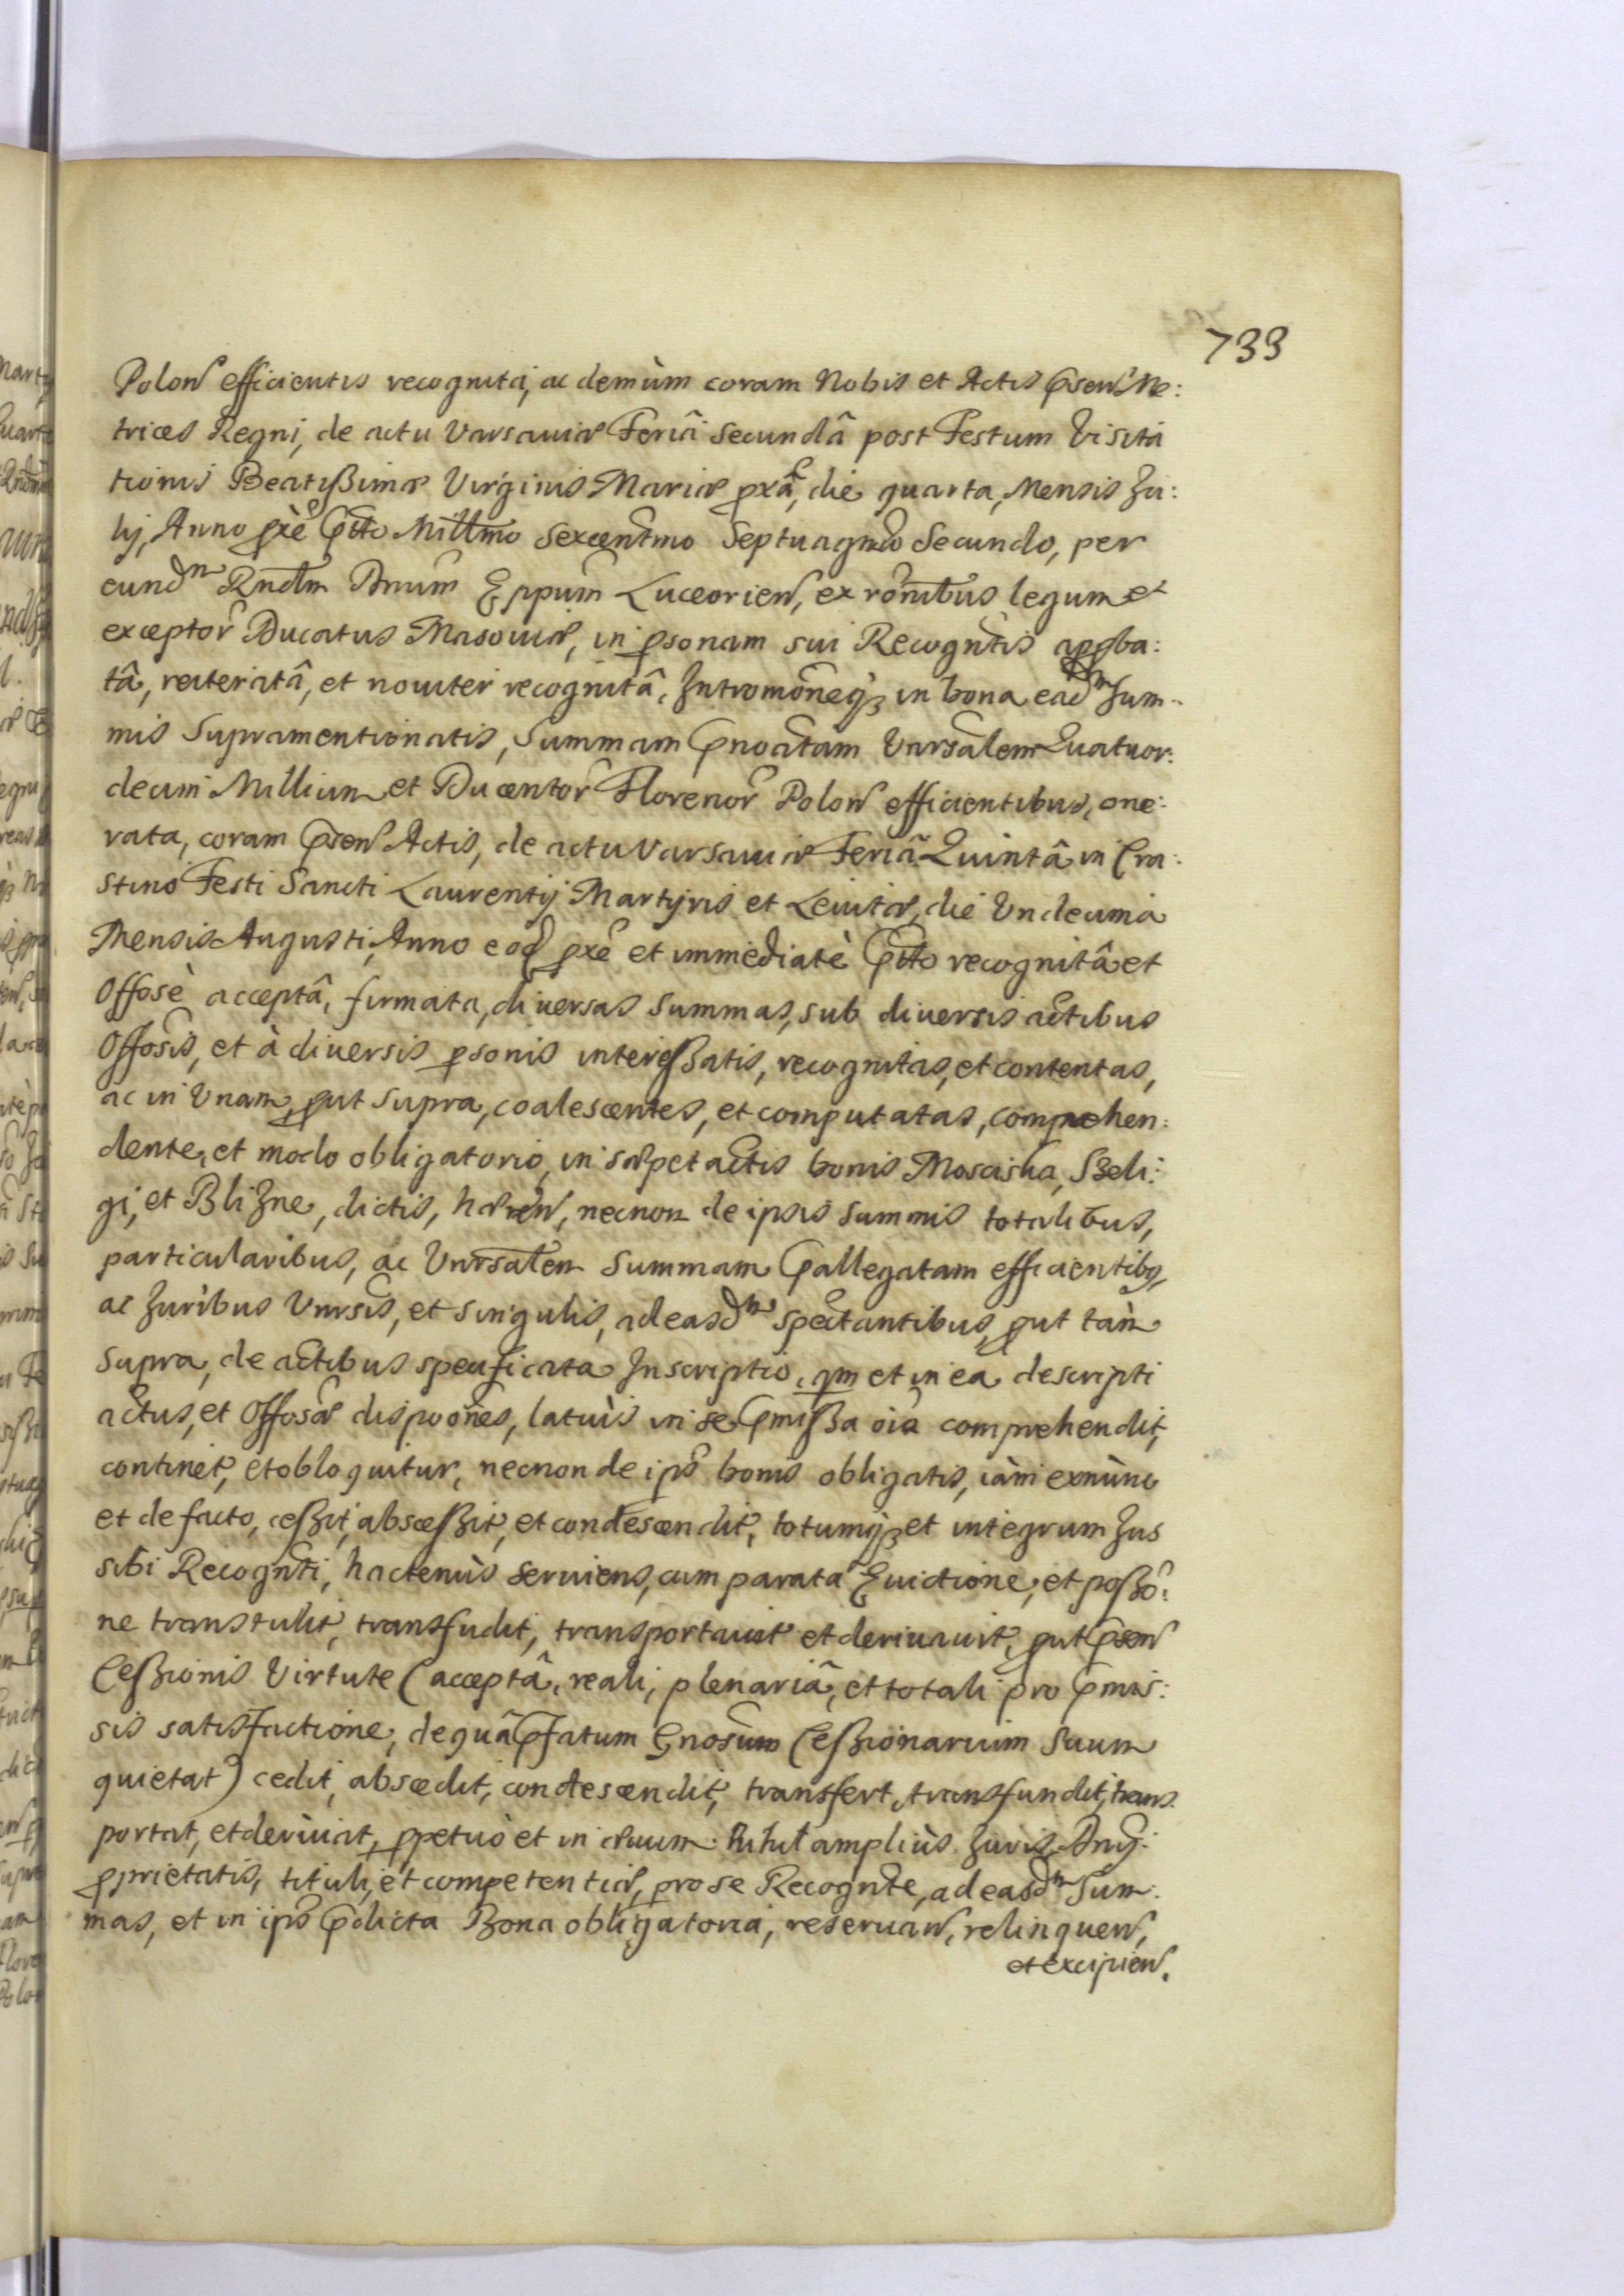 733
Polon̄ efficientis recognitâ, ac demùm coram Nobis et Actis p̃sen̄ Me:
trices Regni, de actu Varsaviæ Feriâ Secundâ post Festum Visita
tionis Beatißimæ Virginis Mariæ pxâ, die quarta, Mensis Ju:
lij, Anno pxè p̃tto Millmo Sexcentmo Septuagmo Secundo, per
eundm Rndm Dnum Eppum Luceorien̄, ex ronibus legum et
exceptor̃ Ducatus Masoviæ, in psonam sui Recogntis appba:
tâ, reiteratâ, et noviter recognitâ, Intromoneqꝫ in bona eadm Sum-
mis Supramentionatis, Summam p̃noatam Unrsalem Quatuor:
decim Millium et Ducentor̃ Florenor̃ Polon̄ efficientibus, one:
rata, coram p̃sen̄ Actis, de actu Varsaviæ Feriâ Quintâ in Cra:
stino Festi Sancti Laurentij Martyris et Levitæ, die Undecima
Mensis Augusti, Anno eod pxè et immediatè p̃tto recognitâ et
Offosè acceptâ, firmata, diversas Summas, sub diversis actibus
Offosis, et à diversis psonis intereßatis, recognitas, et contentas,
ac in Unam, put supra, coalescentes, et computatas, comprehen:
dente, et modo obligatorio, in sæpetactis bonis Mosciska, Szeli:
gi, et Blizne, dictis, hæren̄, necnon de ipsis Summis totalibus,
particularibus, ac Unrsalem Summam p̃allegatam efficientibꝫ,
ac Juribus Unrsis, et singulis, ad easdm spectantibus, put tàm
supra, de actibus specificata Inscriptio, qm et in ea descripti
actus, et Offosæ dispoones, latiùs in se p̃mißa oia comprehendit,
continet, et obloquitur, necnon de ips̃ bonis obligatis, iàm exnùnc
et de facto, ceßit, absceßit, et condescendit, totumqꝫ et integrum Jus
sibi Recognti, hactenùs serviens, cum parata Evictione, et poßo:
ne transtulit, transfudit, transportavit et derivavit, put p̃sen̄
Ceßionis Virtute (acceptâ, reali, plenariâ, et totali pro p̃mis:
sis satisfactione, de quâ p̃fatum Gnosum Ceßionarium Suum
quietat) cedit, abscedit, condescendit, transfert, transfundit, trans
portat, et derivat, ppetuò et in ævum. Nihil ampliùs Juris, Dny:
pprietatis, tituli, et competentiæ, pro se Recognte, ad easdm Sum:
mas, et in ips̃ p̃dicta Bona obligatoria, reservan̄, relinquen̄,
et excipien̄.